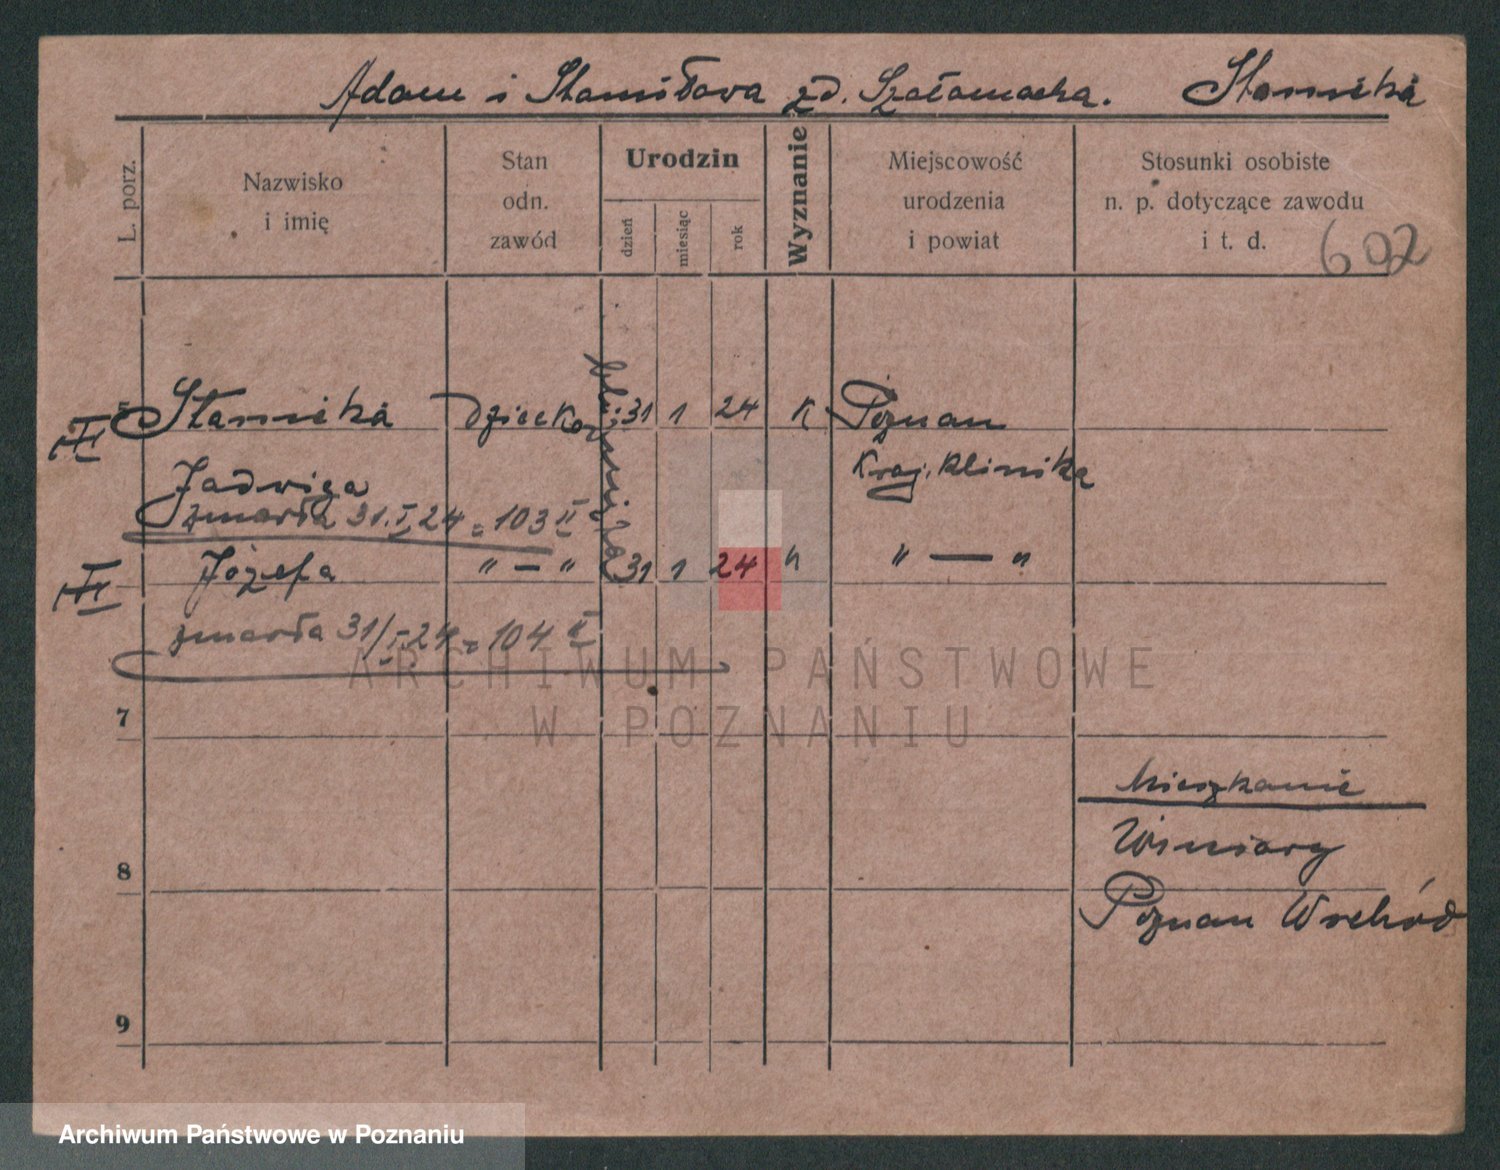 Adam i Stanisława zd. Szałamacka. Stanieká
L. porz.
Nazwisko
i imię
Stan
odn.
zawód
Urodzin
dzień
miesiąc
rok
Wyznanie
Miejscowość
urodzenia
i powiat
Stosunki osobiste
n. p. dotyczące zawodu
i t. d.
602
Dziecko 31 1 24 K Poznan
Jadwiga Kraj. Klinika
zmarła 31.I.24 = 103 II
Józefa " — " 31 1 24 " " — "
zmarła 31/I.24 = 104 II
7
Mieszkanie
8
Winiary
Poznan Wschód
9
ARCHIWUM PAŃSTWOWE
W POZNANIU
Archiwum Państwowe w Poznaniu